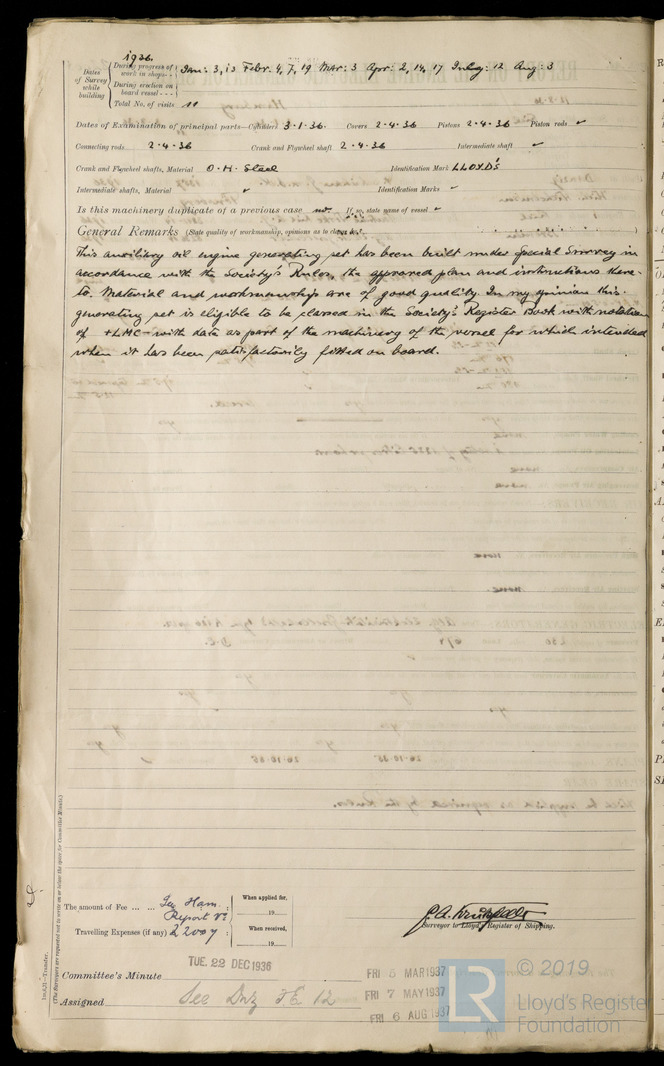 1936.
Dates of Survey while building
During progress of work in shops - -
Jan: 3, 13 Febr. 4, 7, 19 Mar: 3 Apr: 2, 14, 17 July: 12 Aug: 3
During erection on board vessel - - -
Total No. of visits 11
Dates of Examination of principal parts—Cylinders 3·1·36. Covers 2·4·36 Pistons 2·4·36 Piston rods ✓
Connecting rods 2·4·36 Crank and Flywheel shaft 2·4·36 Intermediate shaft ✓
Crank and Flywheel shafts, Material O.H. Steel Identification Mark LLOYD'S
Intermediate shafts, Material ✓ Identification Marks ✓
Is this machinery duplicate of a previous case no. If so, state name of vessel ✓
General Remarks (State quality of workmanship, opinions as to class, &c.
This auxiliary oil engine generating set has been built under Special Survey in
accordance with the Society's Rules, the approved plan and instructions there-
to. Material and workmanship are of good quality. In my opinion this
generating set is eligible to be classed in the Society's Register Book with notation
of +LMC— with date as part of the machinery of the vessel for which intended
when it has been satisfactorily fitted on board.
Im.3,21.—Transfer.
(The Surveyors are requested not to write on or below the space for Committee's Minute.)
The amount of Fee ... ... See Ham. :
Report No
Travelling Expenses (if any) 22007 :
When applied for,
19
When received,
19
Surveyor to Lloyd's Register of Shipping.
Committee's Minute TUE. 22 DEC 1936
FRI 5 MAR 1937
FRI 7 MAY 1937
FRI 6 AUG 1937
Assigned See Dnz F.E. 12
LR
© 2019
Lloyd's Register
Foundation